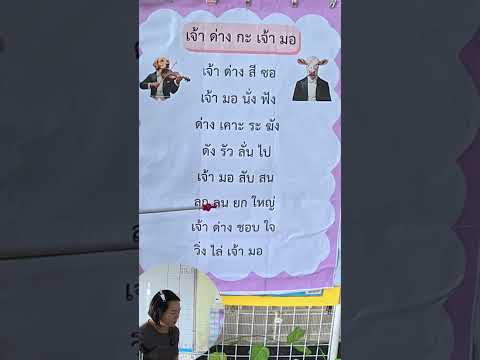 เจ้า ด่าง กะ เจ้า มอ
เจ้า ด่าง สี ซอ
เจ้า มอ นั่ง ฟัง
ด่าง เคาะ ระ ฆัง
ดัง รัว ลั่น ไป
เจ้า มอ สับ สน
ลุก ลน ยก ใหญ่
เจ้า ด่าง ชอบ ใจ
วิ่ง ไล่ เจ้า มอ